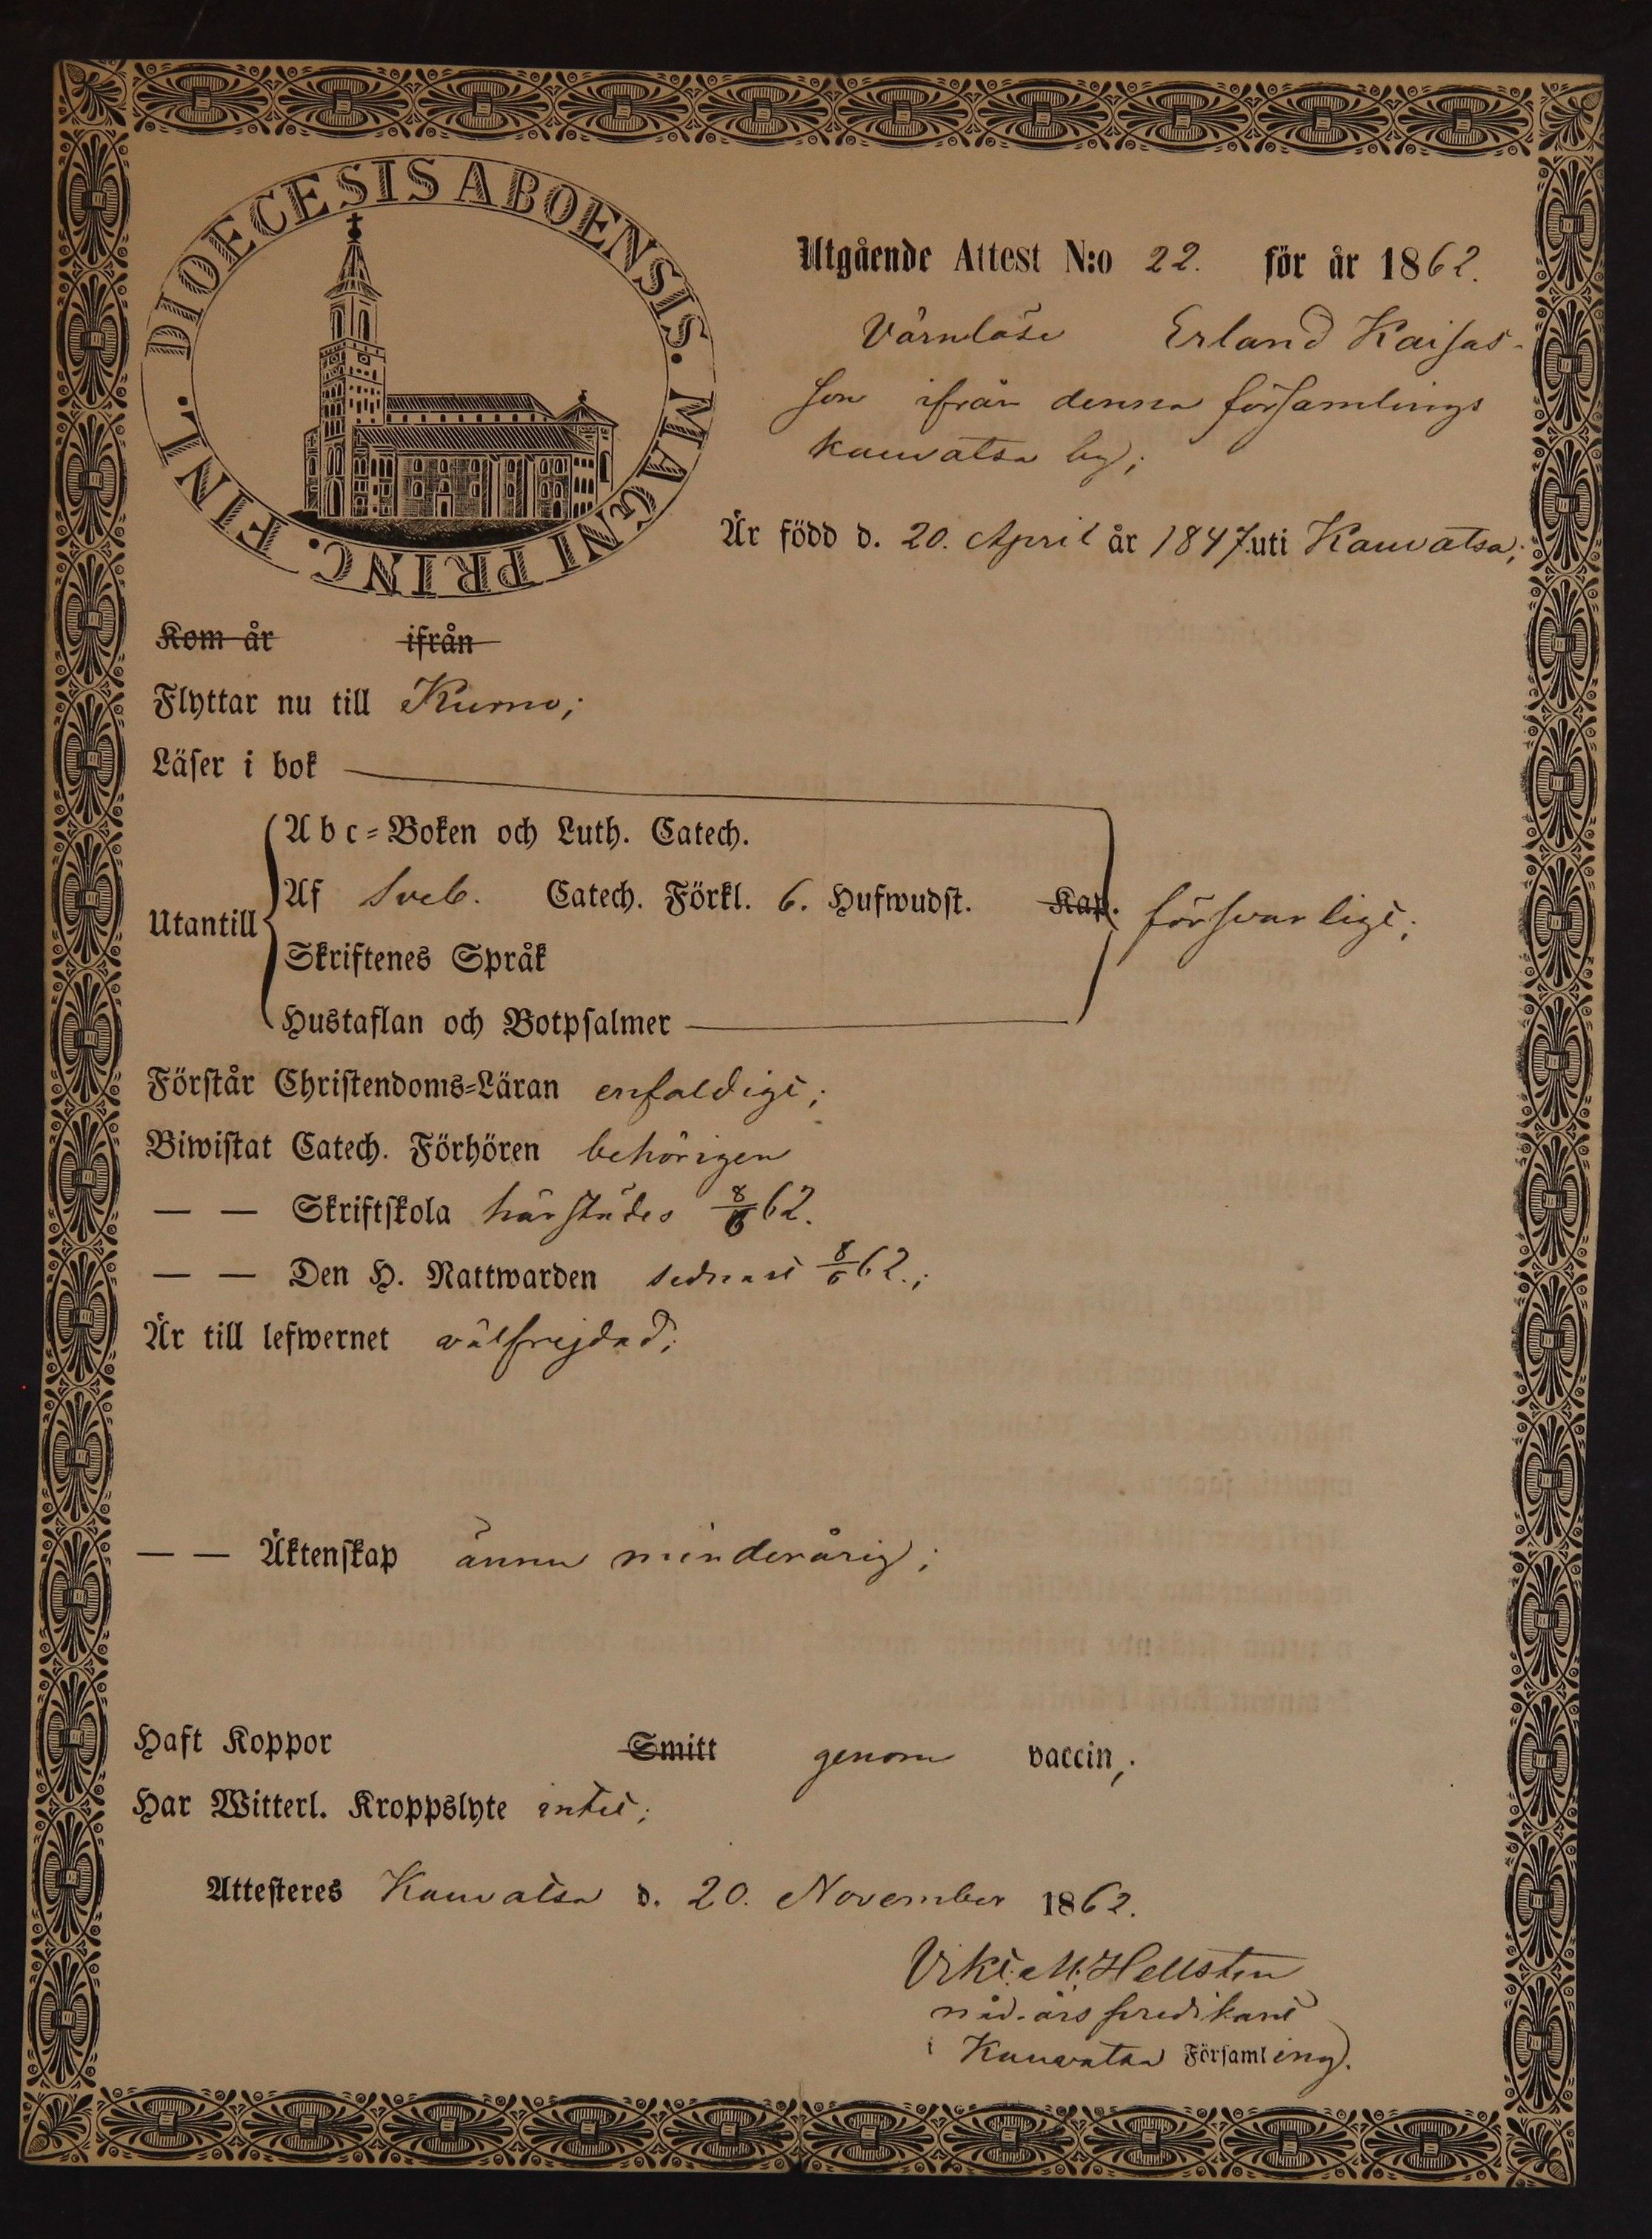 DIOECESIS ABOENSIS. MAGNI PRINC. FINL.
Utgående Attest N:o 22. för år 1862.
Värnlöse Erland Kaisas-
son ifrån denna församlings
Kauvatsa by;
Är född d. 20. April år 1847. uti Kauvatsa;
Kom år ifrån
Flyttar nu till Kumo;
Läser i bok
Abc-Boken och Luth. Catech.
Af Sveb. Catech. Förkl. 6. Hufwudst. Kap. försvarligt;
Utantill
Skriftenes Språk
Hustaflan och Botpsalmer
Förstår Christendoms-Läran enfaldigt;
Biwistat Catech. Förhören behörigen
— — Skriftskola härstädes 8/6 62.
— — Den H. Nattwarden sednast 8/6 62.;
Är till lefwernet välfrejdad;
— — Äktenskap ännu minderårig;
Haft Koppor Smitt genom vaccin;
Har Witterl. Kroppslyte intet;
Attesteres Kauvatsa d. 20. November 1862.
Vikt. M. Hellsten
nåd.års predikant
i Kauvatsa Församling.